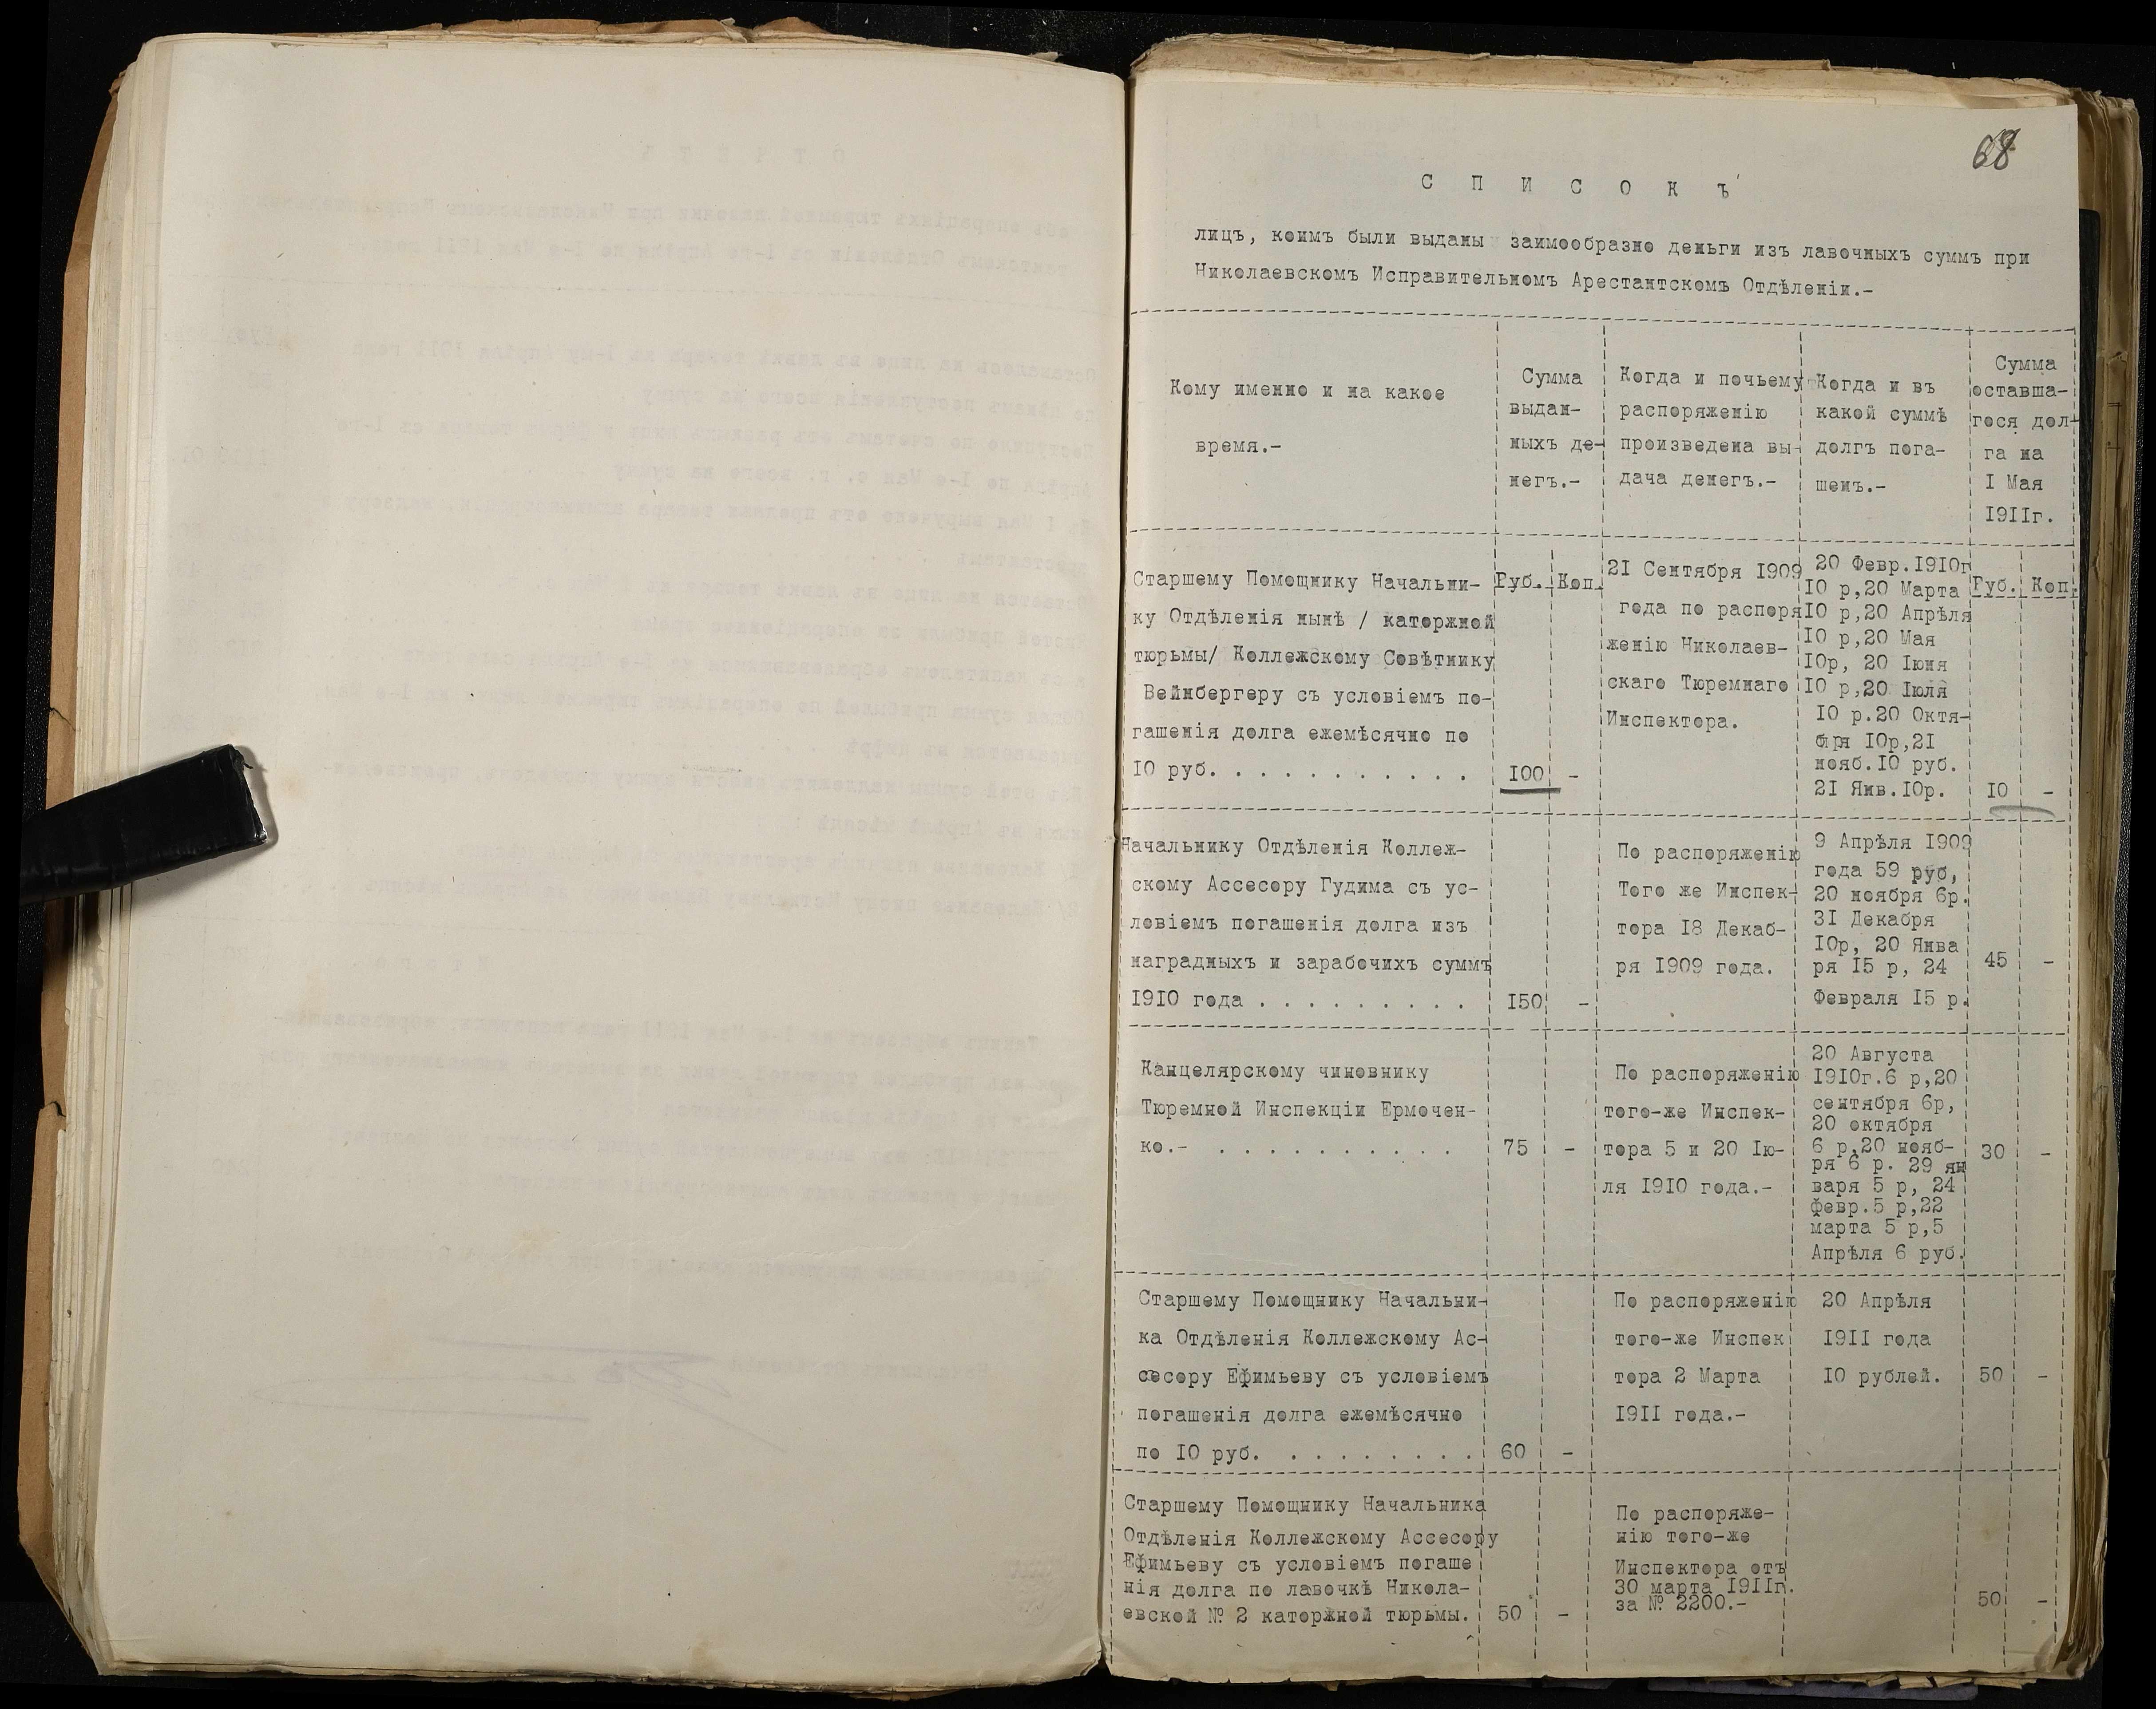 68
С П И С О К Ъ
лицъ, коимъ были выданы заимообразно деньги изъ лавочныхъ суммъ при
Николаевскомъ Исправительномъ Арестантскомъ Отдѣленіи.-
Кому именно и на какое
время.-
Сумма
выдан-
ныхъ де-
негъ.-
Когда и почьему
распоряженію
произведена вы-
дача денегъ.-
Когда и въ
какой суммѣ
долгъ пога-
шенъ.-
Сумма
оставша-
гося дол-
га на
I Мая
I9IIг.
Старшему Помощнику Начальни-
ку Отдѣленія нынѣ / каторжной
тюрьмы/ Коллежскому Совѣтнику
Вейнбергеру съ условіемъ по-
гашенія долга ежемѣсячно по
I0 руб. . . . . . . . . . . .
Руб. Коп.
I00 -
2I Сентября I909
года по распоря
женію Николаев-
скаго Тюремнаго
Инспектора.
20 Февр.I9I0г
I0 р,20 Марта
I0 р,20 Апрѣля
I0 р,20 Мая
I0р, 20 Іюня
I0 р,20 Іюля
I0 р.20 Октя-
бря I0р,2I
нояб.I0 руб.
2I Янв.I0р.
Руб. Коп.
I0 -
Начальнику Отдѣленія Коллеж-
скому Ассесору Гудима съ ус-
ловіемъ погашенія долга изъ
наградныхъ и зарабочихъ суммъ
I9I0 года . . . . . . . . .
I50 -
По распоряженію
Того же Инспек-
тора I8 Декаб-
ря I909 года.
9 Апрѣля I909
года 59 руб,
20 ноября 6р.
3I Декабря
I0р, 20 Янва
ря I5 р, 24
Февраля I5 р.
45 -
Канцелярскому чиновнику
Тюремной Инспекціи Ермочен-
ко.- . . . . . . . . . .
75 -
По распоряженію
того-же Инспек-
тора 5 и 20 Ію-
ля I9I0 года.-
20 Августа
I9I0г.6 р,20
сентября 6р,
20 октября
6 р,20 нояб-
ря 6 р. 29 ян
варя 5 р, 24
февр.5 р,22
марта 5 р,5
Апрѣля 6 руб.
30 -
Старшему Помощнику Начальни-
ка Отдѣленія Коллежскому Ас-
сесору Ефимьеву съ условіемъ
погашенія долга ежемѣсячно
по I0 руб. . . . . . . . . .
60 -
По распоряженію
того-же Инспек
тора 2 Марта
I9II года.-
20 Апрѣля
I9II года
I0 рублей.
50 -
Старшему Помощнику Начальника
Отдѣленія Коллежскому Ассесору
Ефимьеву съ условіемъ погаше
нія долга по лавочкѣ Никола-
евской № 2 каторжной тюрьмы.
50 -
По распоряже-
нію того-же
Инспектора отъ
30 марта I9IIг.
за № 2200.-
50 -